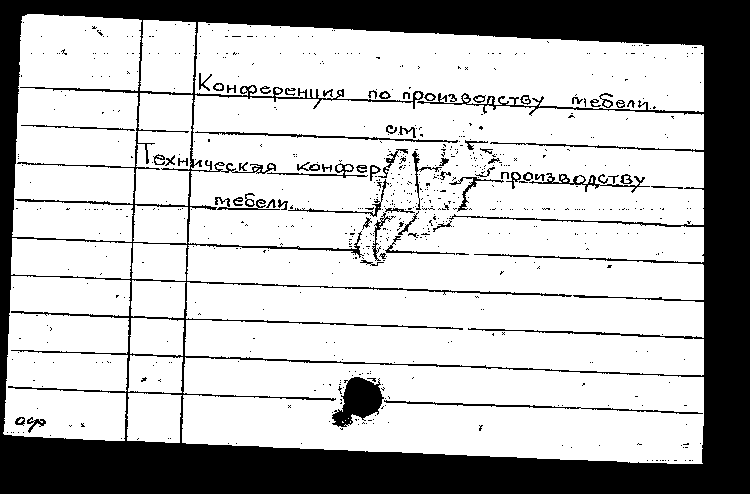 Конференция по производству мебели.
см.
Техническая конфере производству
мебели.